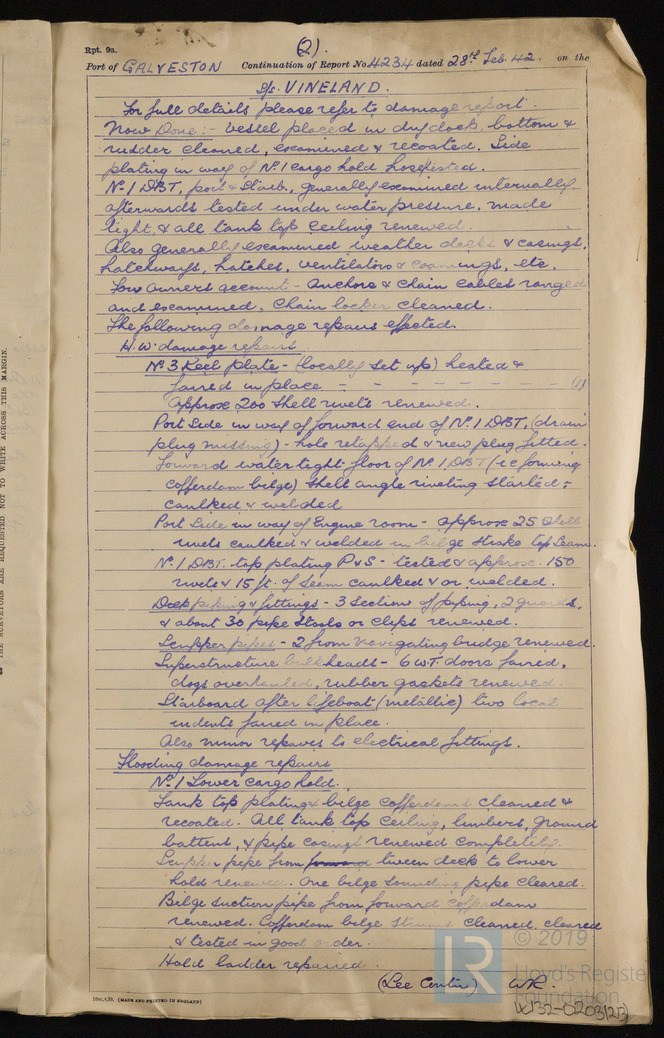 Rpt. 9a.
(2).
Port of GALVESTON Continuation of Report No 4234 dated 28th Feb. 42. on the
s/s. VINELAND.
For full details please refer to damage report.
Now Done:- vessel placed in dry dock, bottom &
rudder cleaned, examined & recoated. Side
plating in way of No. 1 cargo hold hose tested.
No. 1 DBT, port & Starb, generally examined internally,
afterwards tested under water pressure, made
tight, & all tank top ceiling renewed.
Also generally examined weather decks & casings,
hatchways, hatches, ventilators & coamings, etc.
For owners account - anchors & chain cables ranged
and examined, Chain locker cleaned.
The following damage repairs effected.
H.W. damage repairs
No. 3 Keel plate - (locally set up) heated &
faired in place - - - - - - - - (1)
Approx 200 shell rivets renewed.
Port Side in way of forward end of No. 1 DBT, (drain
plug missing) - hole retapped & new plug fitted.
Forward water tight floor of No. 1 DBT (ie forming
cofferdam bilge) shell angle riveting started;
caulked & welded
Port Side in way of Engine room - approx 25 shell
rivets caulked & welded in bilge strake top seam.
No. 1 DBT. top plating P&S - tested & approx. 150
rivets & 15 ft. of seam caulked & or welded.
Deck piping & fittings - 3 sections of piping, 2 guards,
& about 30 pipe stools or clips renewed.
Scupper pipes - 2 from navigating bridge renewed.
Superstructure bulkheads - 6 W.T. doors faired,
dogs overhauled, rubber gaskets renewed.
Starboard after lifeboat (metallic) two local
indents faired in place.
Also minor repairs to electrical fittings.
Flooding damage repairs
No. 1 Lower cargo hold.
Tank top plating & bilge cofferdams cleaned &
recoated. All tank top ceiling, limbers, ground
battens, & pipe casings renewed completely.
Scupper pipe from forward tween deck to lower
hold renewed. One bilge sounding pipe cleared.
Bilge suction pipe from forward cofferdam
renewed. Cofferdam bilge cleaned, cleared
& tested in good order.
Hold ladder repaired.
(See Contin) WR.
10m.4.39. (MADE AND PRINTED IN ENGLAND)
THE SURVEYORS ARE REQUESTED NOT TO WRITE ACROSS THIS MARGIN.
© 2019
LR
Lloyd's Register
Foundation
W132-0203(2/3)